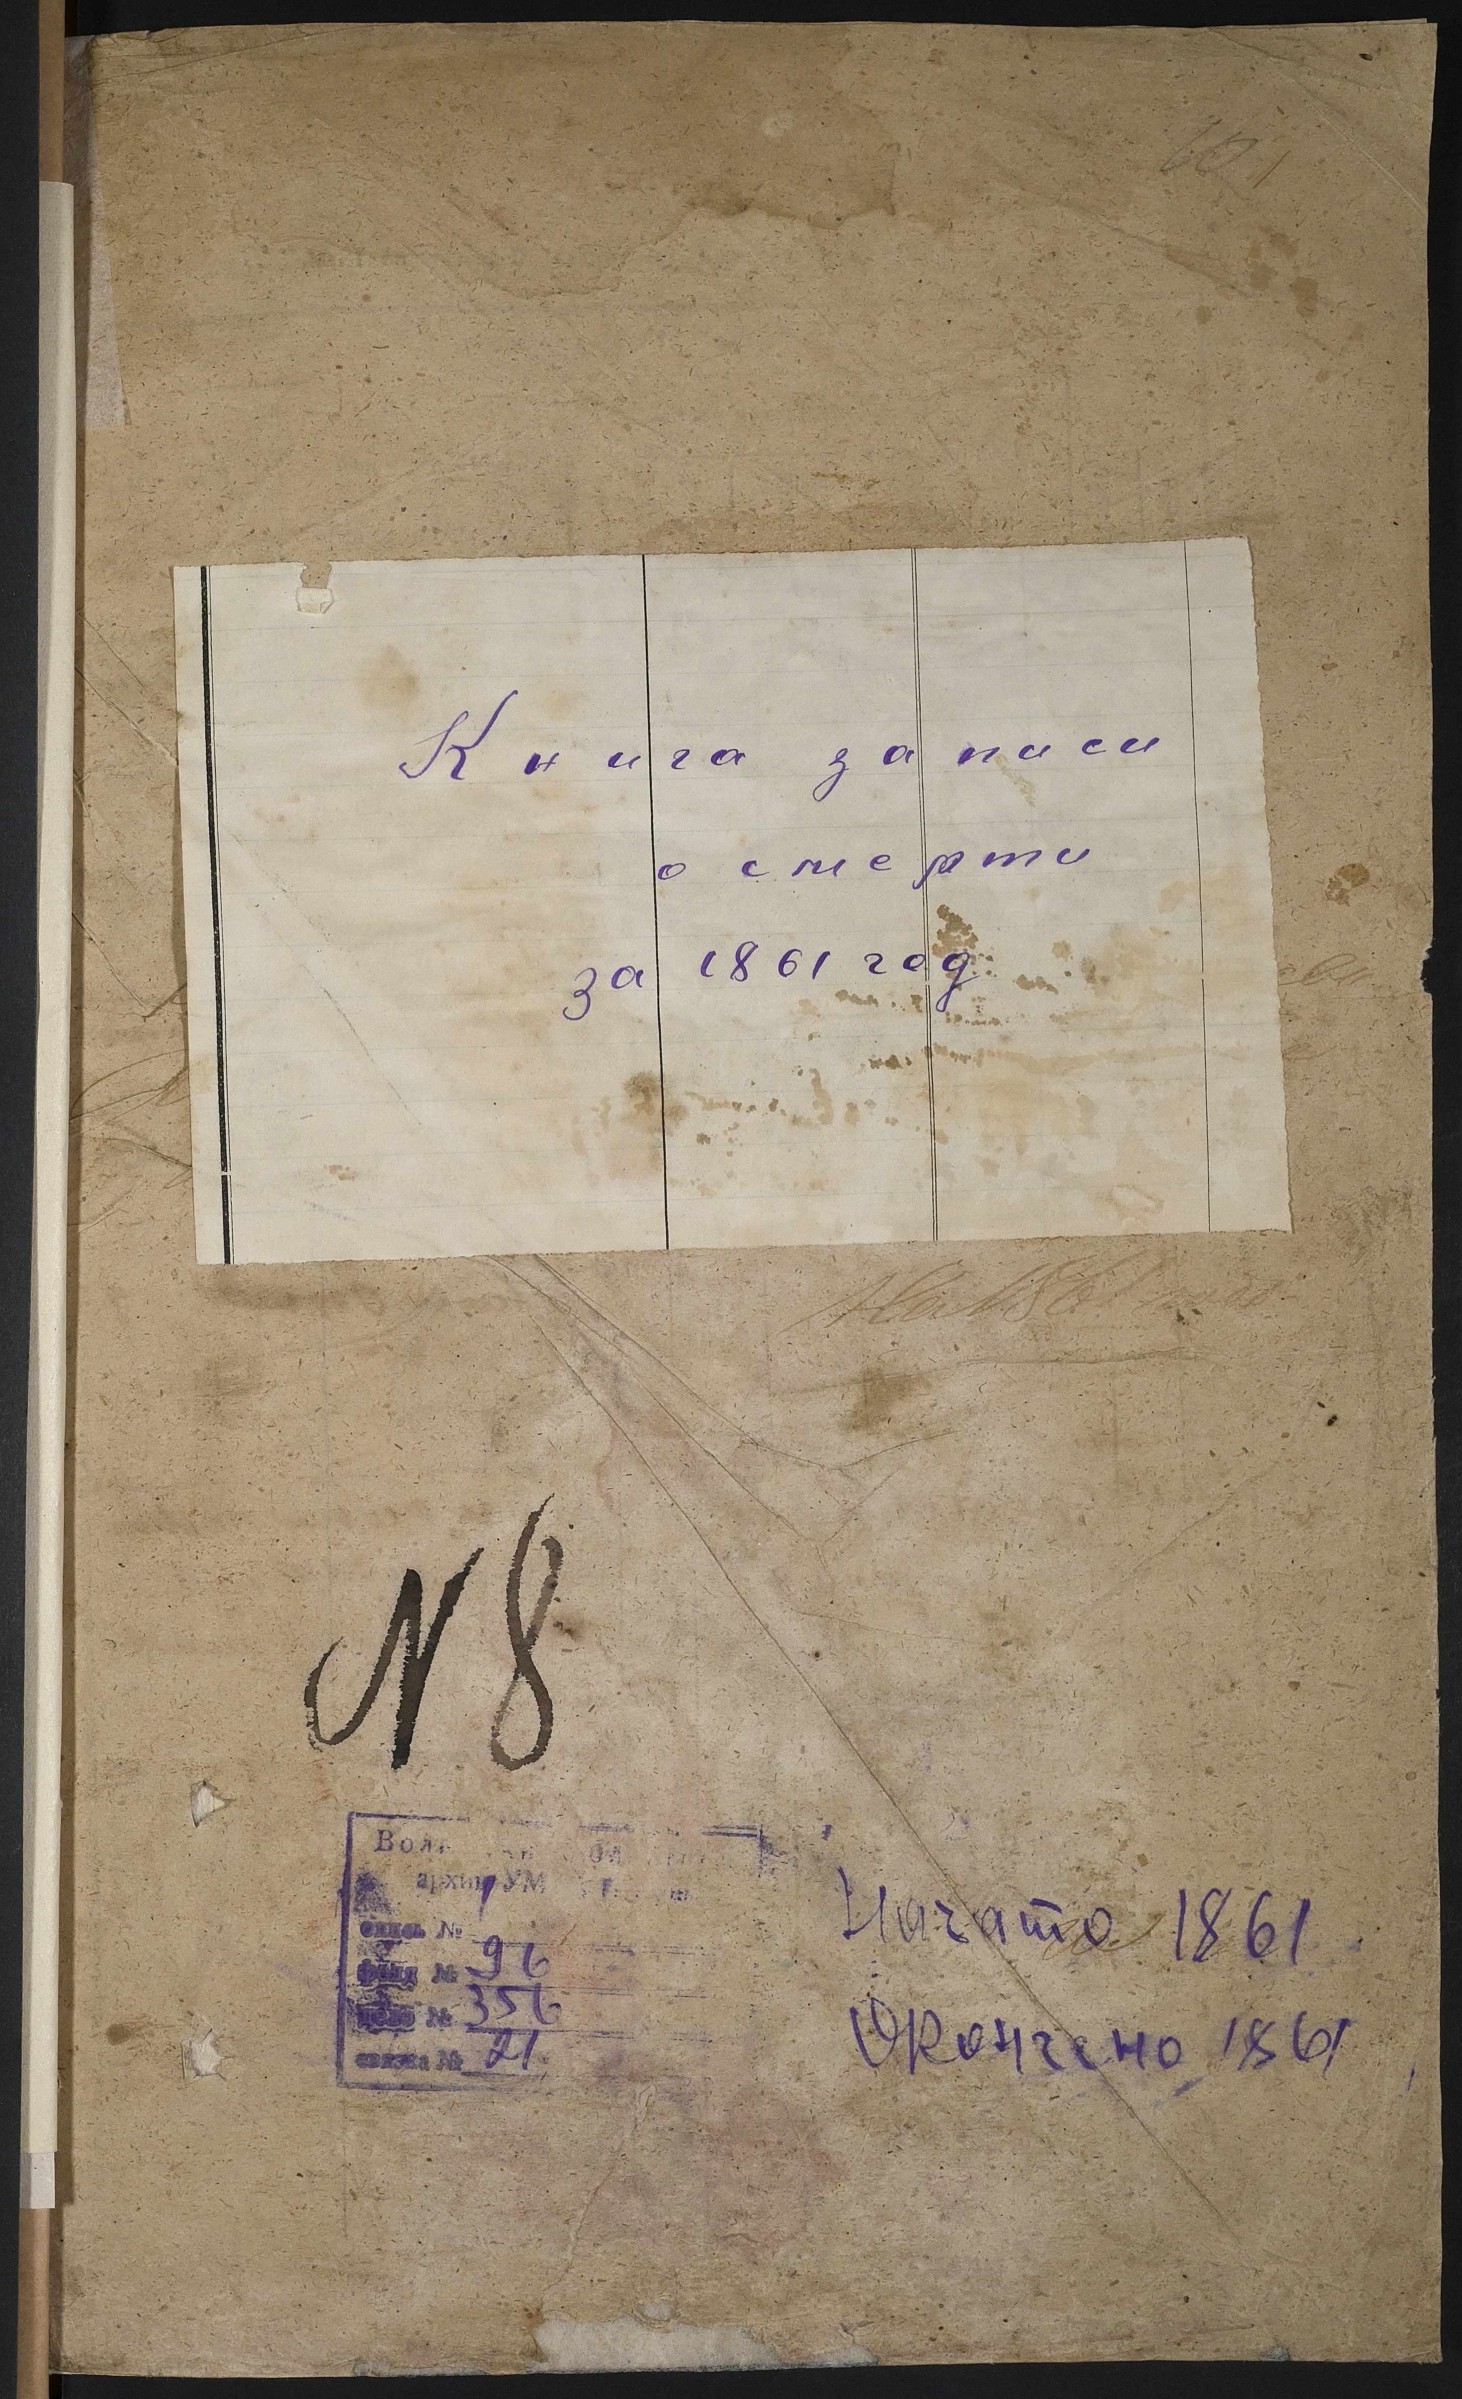 Книга записи
о смерти
за 1861 год
На 1861 годъ
N 8
архив УМ
опись № 1
фонд № 96
дело № 356
связка № 21
Начато 1861
Окончено 1861